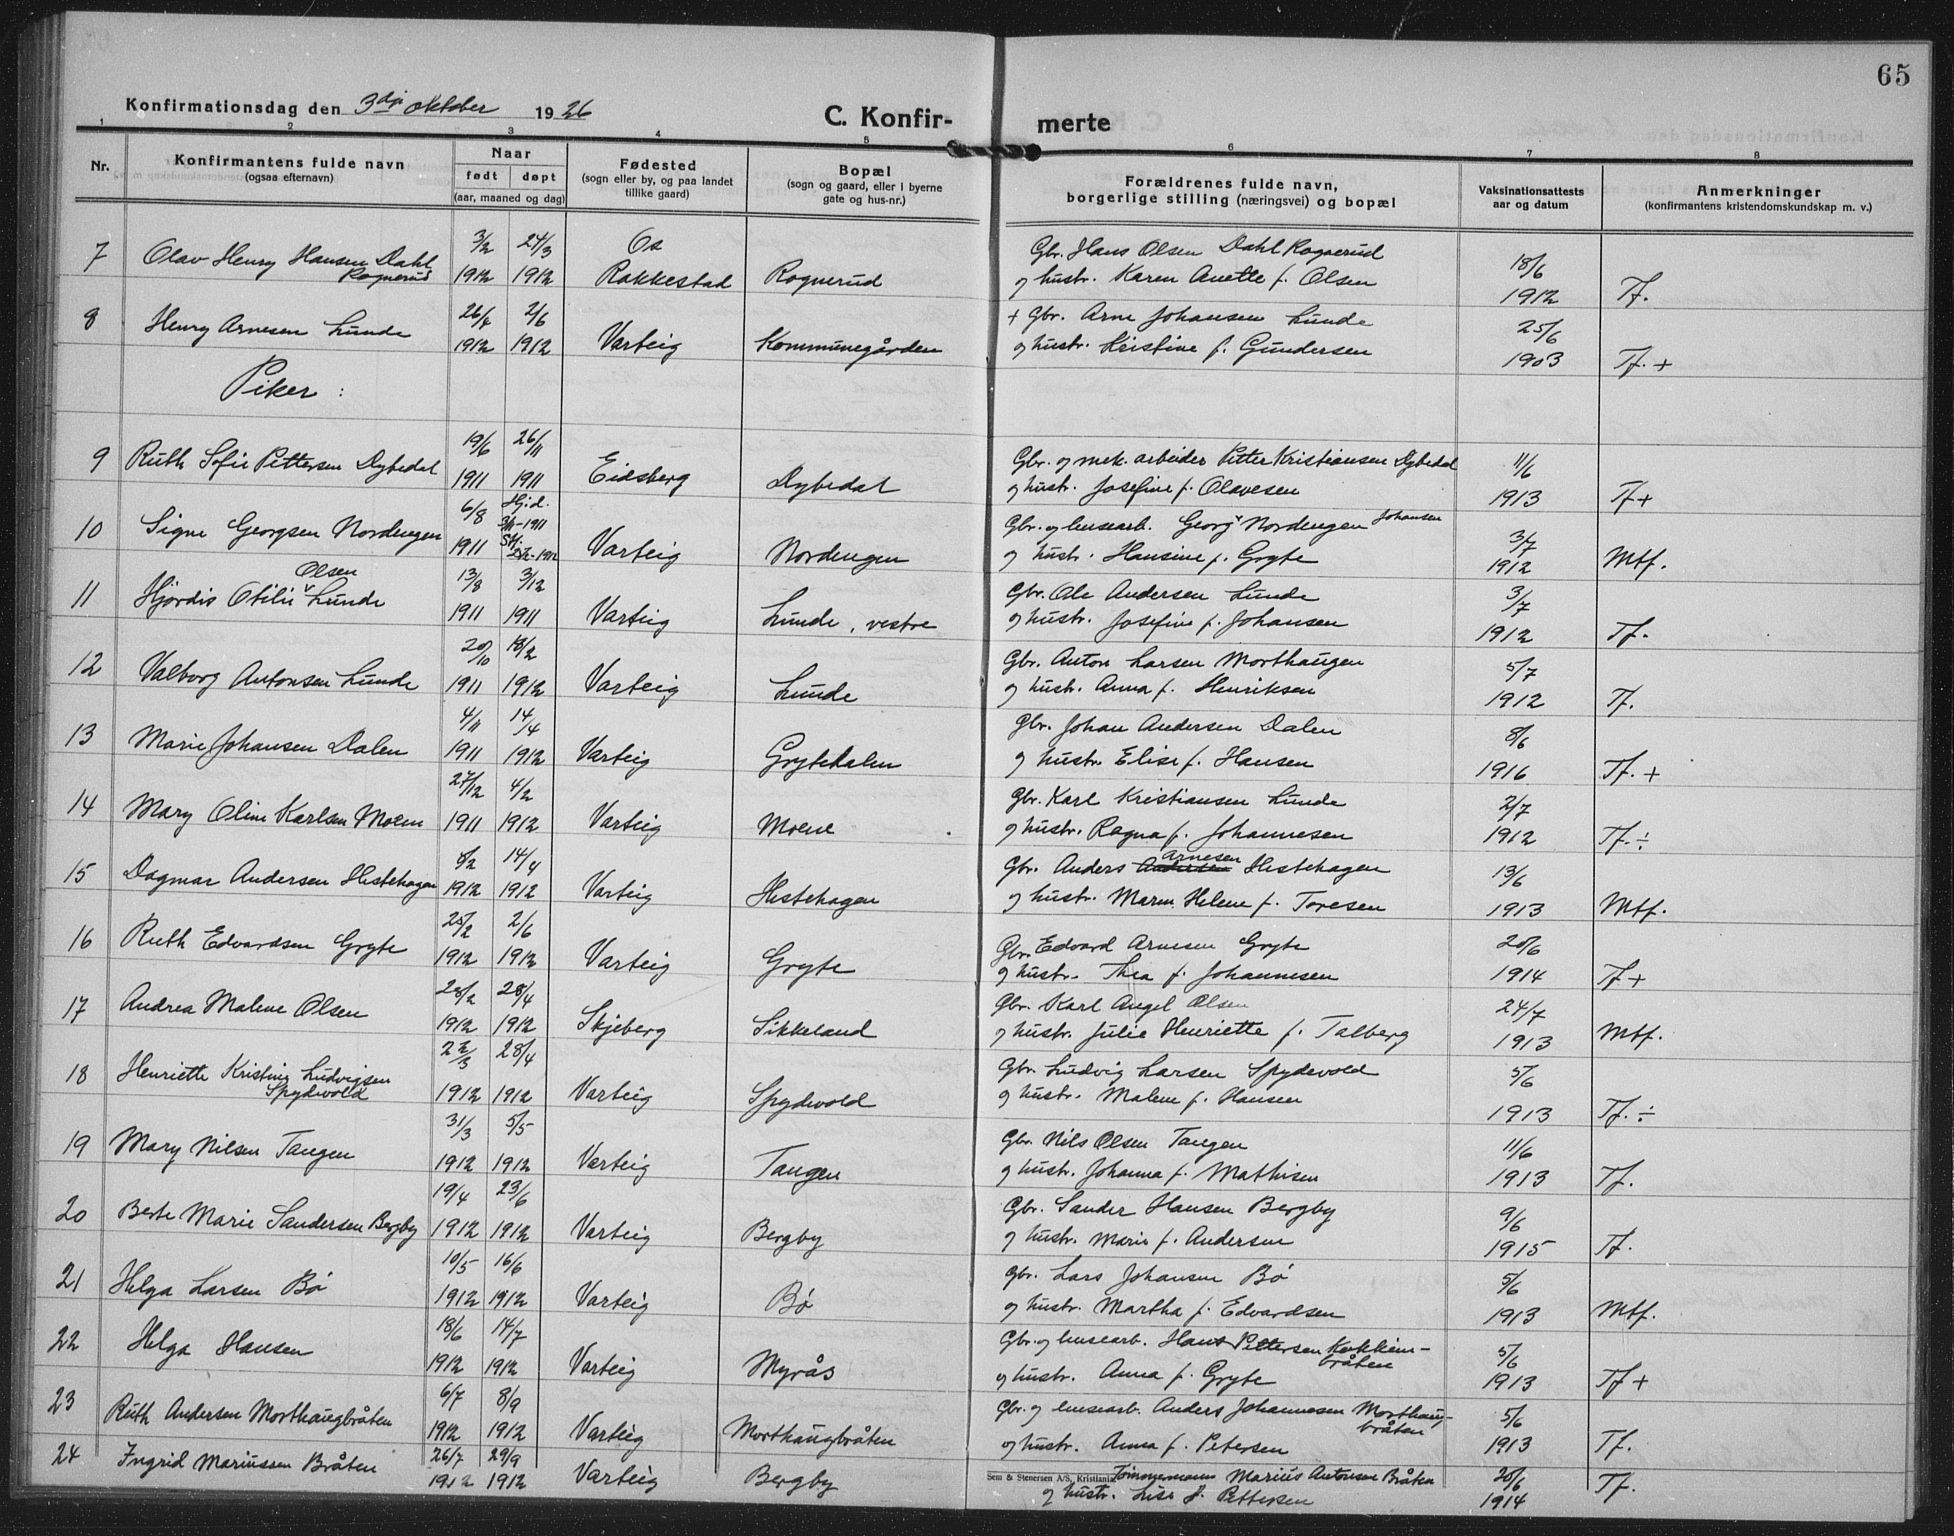 65
Konfirmationsdag den 3dje oktober 1926
C. Konfir- merte
1 2 3 4 5 6 7 8
Nr. | Konfirmantens fulde navn (ogsaa efternavn) | Naar født døpt (aar, maaned og dag) | Fødested (sogn eller by, og paa landet tillike gaard) | Bopæl (sogn og gaard, eller i byerne gate og hus-nr.) | Forældrenes fulde navn, borgerlige stilling (næringsvei) og bopæl | Vaksinationsattests aar og datum | Anmerkninger (konfirmantens kristendomskundskap m. v.)
7 Olav Henry Hansen Dahl Rognerud 3/2 1912 24/3 1912 Os Rakkestad Rognerud Gbr. Hans Olsen Dahl Rognerud
og hustr. Karen Anette f. Olsen 18/6 1912 Tf.
8 Henry Arnesen Lunde 26/4 1912 2/6 1912 Varteig Kommunegården + Gbr. Arne Johansen Lunde
og hustr. Kristine f. Gundersen 25/6 1903 Tf. +
Piker :
9 Ruth Sofie Pettersen Dybedal 19/6 1911 26/11 1911 Eidsberg Dybedal Gbr. og mek. arbeider Petter Kristiansen Dybedal
og hustr. Josefine f. Olavesen 11/6 1913 Tf +
10 Signe Georgsen Nordengen 6/8 1911 Hj.d. 3/11-1911 Varteig Nordengen Gbr. og busearb. Georg Johansen Nordengen
og hustr. Hansine f. Gryte 3/7 1912 Mtf.
11 Hjørdis Otilie Olsen Lunde 13/8 1911 3/12 1911 Varteig Lunde, vestre Gbr. Ole Andersen Lunde
og hustr. Josefine f. Johansen 3/7 1912 Tf.
12 Valborg Antonsen Lunde 20/10 1911 18/2 1912 Varteig Lunde Gbr. Anton Larsen Morthaugen
og hustr. Anna f. Henriksen 5/7 1912 Tf.
13 Marie Johansen Dalen 4/11 1911 14/4 1912 Varteig Grytedalen Gbr. Johan Andersen Dalen
og hustr. Elise f. Hansen 8/6 1916 Tf. +
14 Mary Oline Karlsen Moene 27/12 1911 4/2 1912 Varteig Moene Gbr. Karl Kristiansen Lunde
og hustr. Ragna f. Johannesen 2/7 1912 Tf. ÷
15 Dagmar Andersen Hestehagen 8/2 1912 14/4 1912 Varteig Hestehagen Gbr. Anders Andersen Arnesen Hestehagen
og hustr. Maren Helene f. Toresen 13/6 1913 Mtf.
16 Ruth Edvardsen Gryte 25/2 1912 2/6 1912 Varteig Gryte Gbr. Edvard Arnesen Gryte
og hustr. Thea f. Johannesen 20/6 1914 Tf +
17 Andrea Malene Olsen 28/2 1912 28/4 1912 Skjeberg Sikkeland Gbr. Karl Angel Olsen
og hustr. Julie Henriette f. Talberg 24/7 1913 Mtf.
18 Henriette Kristine Ludvigsen Spydevold 1912 28/4 1912 Varteig Spydevold Gbr. Ludvig Larsen Spydevold
og hustr. Malene f. Hansen 5/6 1913 Tf. ÷
19 Mary Nilsen Tangen 31/3 1912 5/5 1912 Varteig Tangen Gbr. Nils Olsen Tangen
og hustr. Johanna f. Mathisen 11/6 1913 Tf.
20 Berte Marie Sandersen Bergby 19/4 1912 23/6 1912 Varteig Bergby Gbr. Sander Hansen Bergby
og hustr. Marie f. Andersen 9/6 1915 Tf.
21 Helga Larsen Bø 10/5 1912 16/6 1912 Varteig Bø Gbr. Lars Johansen Bø
og hustr. Martha f. Edvardsen 5/6 1913 Mtf.
22 Helga Hansen 18/6 1912 14/7 1912 Varteig Myrås Gbr. og busearb. Hans Pettersen Kokkim-bråten
og hustr. Anna f. Gryte 5/6 1913 Tf +
23 Ruth Andersen Morthaugbråten 6/7 1912 8/9 1912 Varteig Morthaugbråten Gbr. og busearb. Anders Johannesen Morthaug-bråten
og hustr. Anna f. Petersen 5/6 1913 Tf.
24 Ingrid Mariussen Bråten 26/7 1912 29/9 1912 Varteig Bergby Tømmermann Marius Antonsen Bråten
og hustr. Lise f. Pettersen 20/6 1914 Tf.
Sem & Stenersen A/S, Kristiania.